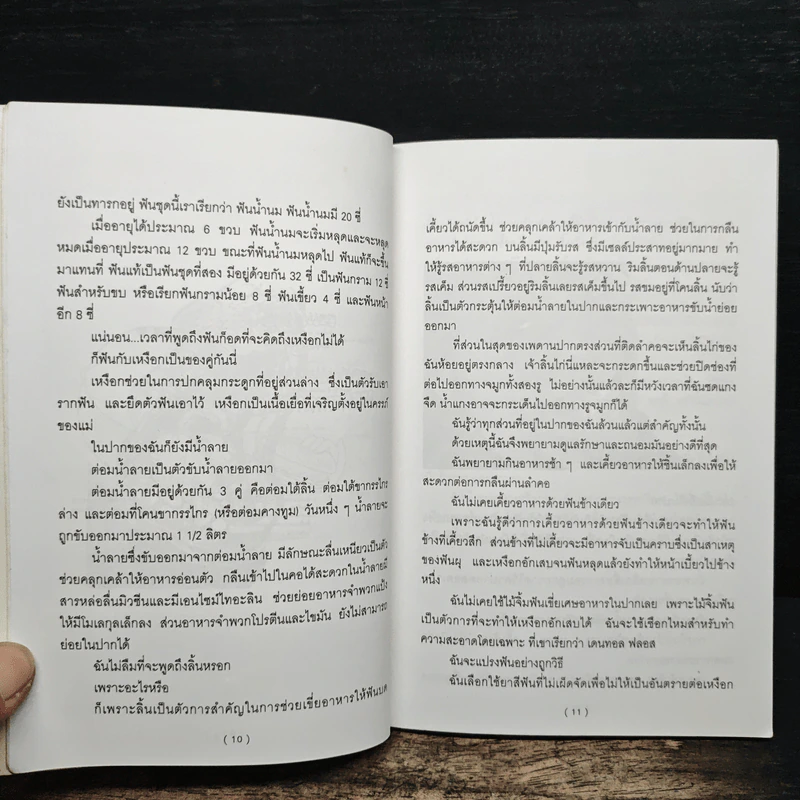 ยังเป็นทารกอยู่ ฟันชุดนี้เราเรียกว่า ฟันน้ำนม ฟันน้ำนมมี 20 ซี่
เมื่ออายุได้ประมาณ 6 ขวบ ฟันน้ำนมจะเริ่มหลุดและจะหลุด
หมดเมื่ออายุประมาณ 12 ขวบ ขณะที่ฟันน้ำนมหลุดไป ฟันแท้ก็จะขึ้น
มาแทนที่ ฟันแท้เป็นฟันชุดที่สอง มีอยู่ด้วยกัน 32 ซี่ เป็นฟันกราม 12 ซี่
ฟันสำหรับขบ หรือเรียกฟันกรามน้อย 8 ซี่ ฟันเขี้ยว 4 ซี่ และฟันหน้า
อีก 8 ซี่
แน่นอน...เวลาที่พูดถึงฟันก็อดที่จะคิดถึงเหงือกไม่ได้
ก็ฟันกับเหงือกเป็นของคู่กันนี่
เหงือกช่วยในการปกคลุมกระดูกที่อยู่ส่วนล่าง ซึ่งเป็นตัวรับเอา
รากฟัน และยึดตัวฟันเอาไว้ เหงือกเป็นเนื้อเยื่อที่เจริญตั้งอยู่ในครรภ์
ของแม่
ในปากของฉันก็ยังมีน้ำลาย
ต่อมน้ำลายเป็นตัวขับน้ำลายออกมา
ต่อมน้ำลายมีอยู่ด้วยกัน 3 คู่ คือต่อมใต้ลิ้น ต่อมใต้ขากรรไกร
ล่าง และต่อมที่โคนขากรรไกร (หรือต่อมคางทูม) วันหนึ่ง ๆ น้ำลายจะ
ถูกขับออกมาประมาณ 1 1/2 ลิตร
น้ำลายซึ่งขับออกมาจากต่อมน้ำลาย มีลักษณะลื่นเหนียวเป็นตัว
ช่วยคลุกเคล้าให้อาหารอ่อนตัว กลืนเข้าไปในคอได้สะดวกในน้ำลายมี
สารหล่อลื่นมิวซีนและมีเอนไซม์ไทอะลิน ช่วยย่อยอาหารจำพวกแป้ง
ให้มีโมเลกุลเล็กลง ส่วนอาหารจำพวกโปรตีนและไขมัน ยังไม่สามารถ
ย่อยในปากได้
ฉันไม่ลืมที่จะพูดถึงลิ้นหรอก
เพราะอะไรหรือ
ก็เพราะลิ้นเป็นตัวการสำคัญในการช่วยเขี่ยอาหารให้ฟันบด
( 10 )
เคี้ยวได้ถนัดขึ้น ช่วยคลุกเคล้าให้อาหารเข้ากับน้ำลาย ช่วยในการกลืน
อาหารได้สะดวก บนลิ้นมีปุ่มรับรส ซึ่งมีเซลล์ประสาทอยู่มากมาย ทำ
ให้รู้รสอาหารต่าง ๆ ที่ปลายลิ้นจะรู้รสหวาน ริมลิ้นตอนด้านปลายจะรู้
รสเค็ม ส่วนรสเปรี้ยวอยู่ริมลิ้นเลยรสเค็มขึ้นไป รสขมอยู่ที่โคนลิ้น นับว่า
ลิ้นเป็นตัวกระตุ้นให้ต่อมน้ำลายในปากและกระเพาะอาหารขับน้ำย่อย
ออกมา
ที่ส่วนในสุดของเพดานปากตรงส่วนที่ติดลำคอจะเห็นลิ้นไก่ของ
ฉันห้อยอยู่ตรงกลาง เจ้าลิ้นไก่นี่แหละจะกระดกขึ้นและช่วยปิดช่องที่
ต่อไปออกทางจมูกทั้งสองรู ไม่อย่างนั้นแล้วละก็มีหวังเวลาที่ฉันซดแกง
จืด น้ำแกงอาจจะกระเด็นไปออกทางรูจมูกก็ได้
ฉันรู้ว่าทุกส่วนที่อยู่ในปากของฉันล้วนแล้วแต่สำคัญทั้งนั้น
ด้วยเหตุนี้ฉันจึงพยายามดูแลรักษาและถนอมมันอย่างดีที่สุด
ฉันพยายามกินอาหารช้า ๆ และเคี้ยวอาหารให้ชิ้นเล็กลงเพื่อให้
สะดวกต่อการกลืนผ่านลำคอ
ฉันไม่เคยเคี้ยวอาหารด้วยฟันข้างเดียว
เพราะฉันรู้ดีว่าการเคี้ยวอาหารด้วยฟันข้างเดียวจะทำให้ฟัน
ข้างที่เคี้ยวสึก ส่วนข้างที่ไม่เคี้ยวจะมีอาหารจับเป็นคราบซึ่งเป็นสาเหตุ
ของฟันผุ และเหงือกอักเสบจนฟันหลุดแล้วยังทำให้หน้าเบี้ยวไปข้าง
หนึ่ง
ฉันไม่เคยใช้ไม้จิ้มฟันเขี่ยเศษอาหารในปากเลย เพราะไม้จิ้มฟัน
เป็นตัวการที่จะทำให้เหงือกอักเสบได้ ฉันจะใช้เชือกไหมสำหรับทำ
ความสะอาดโดยเฉพาะ ที่เขาเรียกว่า เดนทอล ฟลอส
ฉันจะแปรงฟันอย่างถูกวิธี
ฉันเลือกใช้ยาสีฟันที่ไม่เผ็ดจัดเพื่อไม่ให้เป็นอันตรายต่อเหงือก
( 11 )